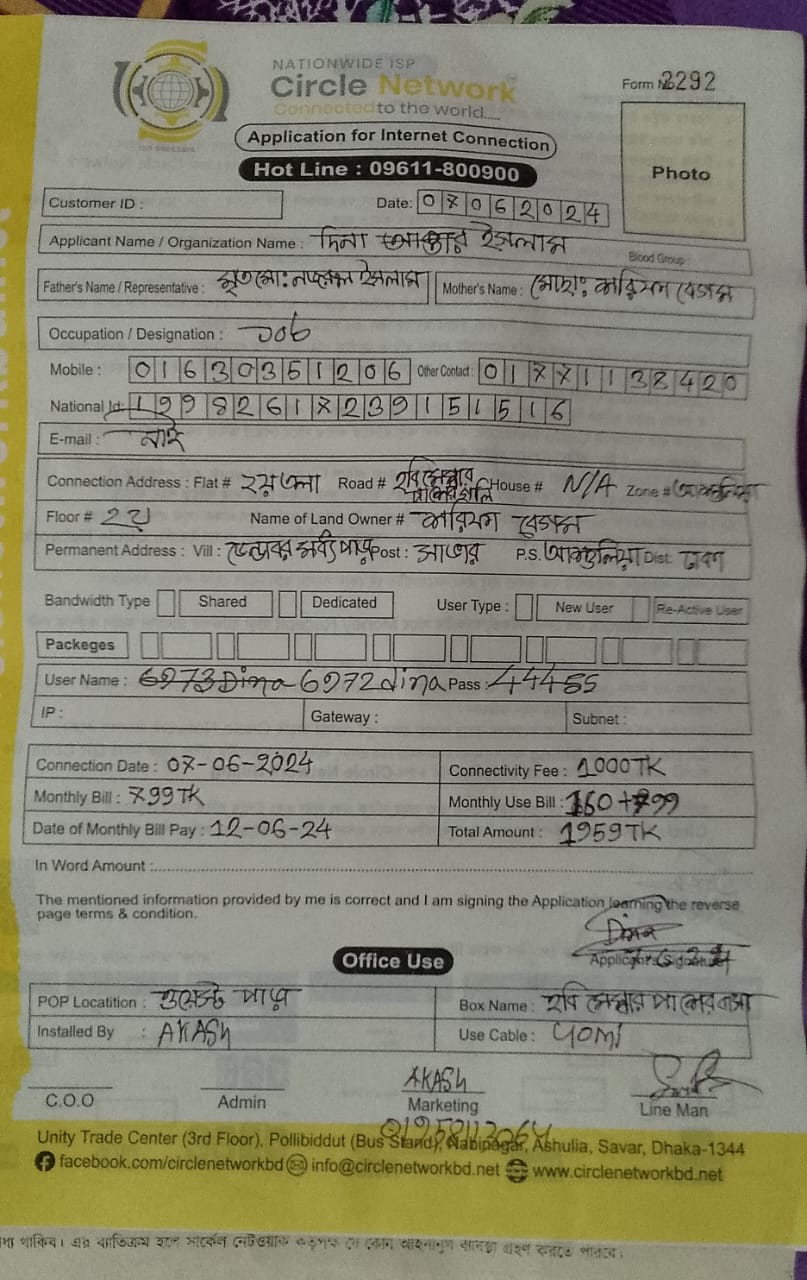 NATIONWIDE ISP
Circle Network
Connected to the world.....
ISO 9001:2015
Form No 3292
Application for Internet Connection
Hot Line : 09611-800900
Photo
Customer ID :
Date: 07062024
Applicant Name / Organization Name : দিনা আক্তার ইসলাম
Blood Group
Father's Name / Representative : মৃত মো: ইসলাম Mother's Name : মোছা: বেগম
Occupation / Designation : Job
Mobile : 01630351206 Other Contact : 01771138420
National Id: 19982617239151516
E-mail : নাই
Connection Address : Flat # ২য় তলা Road # হবি মেম্বার House # N/A Zone # আশুলিয়া
Floor # ২য় Name of Land Owner # বেগম
Permanent Address : Vill : Post : সাভার P.S. আশুলিয়া Dist: ঢাকা
Bandwidth Type Shared Dedicated User Type : New User Re-Active User
Packeges
User Name : 6973Dina 6972dina Pass : 44455
IP : Gateway : Subnet :
Connection Date : 07-06-2024 Connectivity Fee : 1000TK
Monthly Bill : 799TK Monthly Use Bill : 160+799
Date of Monthly Bill Pay : 12-06-24 Total Amount : 1959TK
In Word Amount :
The mentioned information provided by me is correct and I am signing the Application learning the reverse
page terms & condition.
Dina
Applicant's Signature
Office Use
POP Locatition : Box Name : হবি মেম্বার
Installed By : AKASH Use Cable : 40mi
AKASH
C.O.O Admin Marketing Line Man
01958112064
Unity Trade Center (3rd Floor), Pollibiddut (Bus Stand), Nabinagar, Ashulia, Savar, Dhaka-1344
facebook.com/circlenetworkbd info@circlenetworkbd.net www.circlenetworkbd.net
থাকিব। এর ব্যতিক্রম হলে সার্কেল নেটওয়ার্ক কতৃপক্ষ যে কোন আইনানুগ ব্যবস্থা গ্রহণ করতে পারবে।